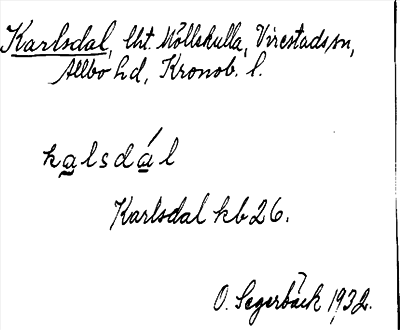 Karlsdal, lht. Möllekulla, Virestads sn,
Allbo hd, Kronob. l.
kalsdál
Karlsdal kb 26.
O. Segerbäck 1932.